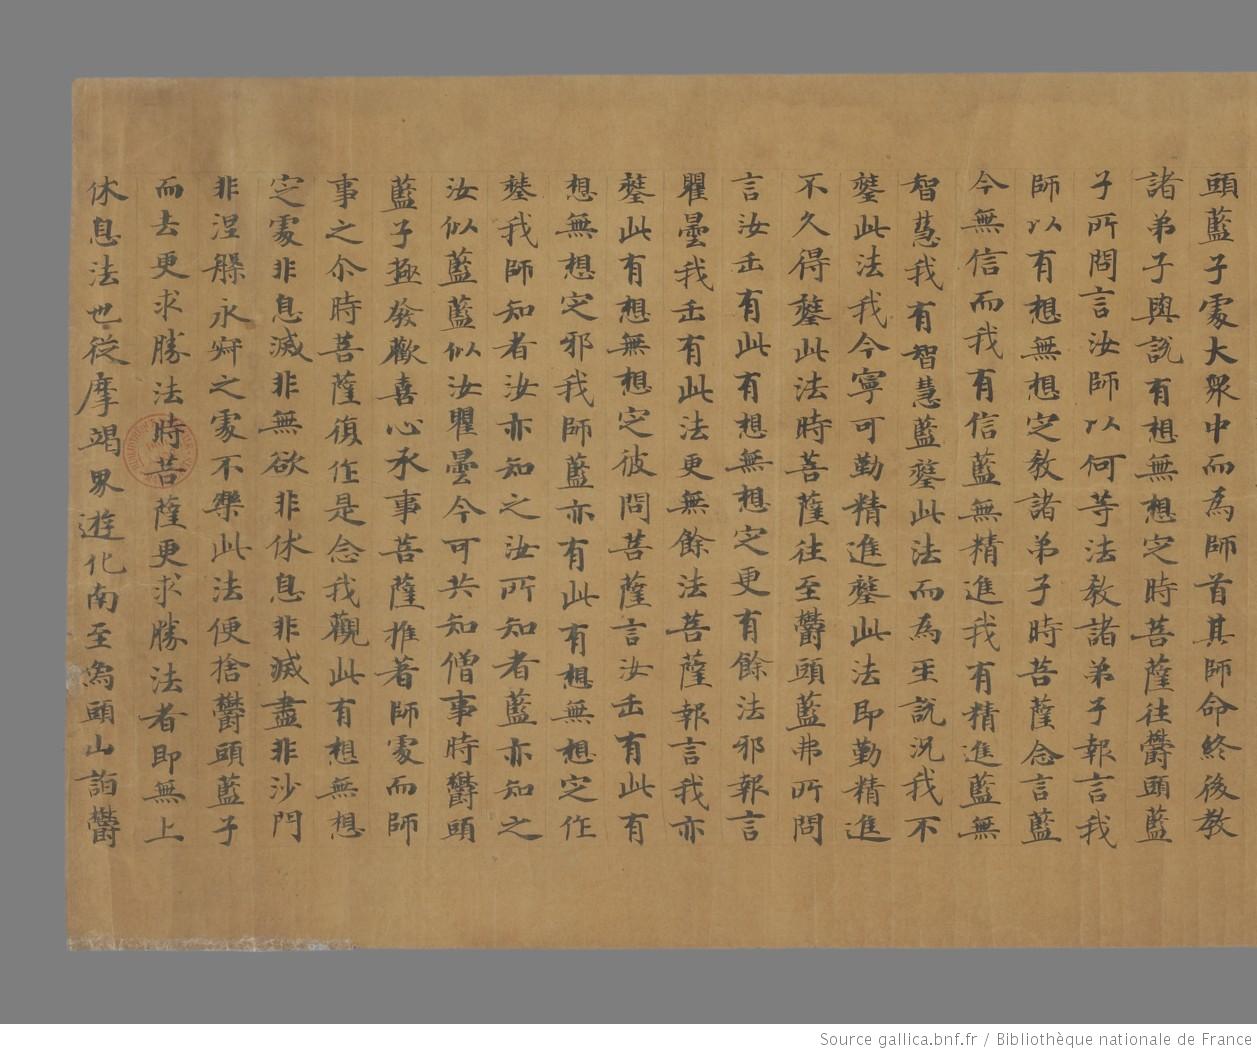 頭藍子處大眾中而為師首其師命終後教
諸弟子與說有想無想定時菩薩往欝頭藍
子所問言汝師以何等法教諸弟子報言我
師以有想無想定教諸弟子時菩薩念言藍
今無信而我有信藍無精進我有精進藍無
智慧我有智慧藍證此法而為至說況我不
證此法我今寧可勤精進證此法即勤精進
不久得證此法時菩薩往至欝頭藍弗所問
言汝缶有此有想無想定更有餘法邪報言
瞿曇我缶有此法更無餘法菩薩報言我亦
證此有想無想定彼問菩薩言汝缶有此有
想無想定邪我師藍亦有此有想無想定作
證我師知者汝亦知之汝所知者藍亦知之
汝似藍藍似汝瞿曇今可共知僧事時欝頭
藍子極發歡喜心承事菩薩推著師處而師
事之尒時菩薩復作是念我觀此有想無想
定處非息滅非無欲非休息非滅盡非沙門
非涅槃永寂之處不樂此法便捨欝頭藍子
而去更求勝法時菩薩更求勝法者即無上
休息法也從摩竭界遊化南至為頭山詣欝
Source gallica.bnf.fr / Bibliothèque nationale de France